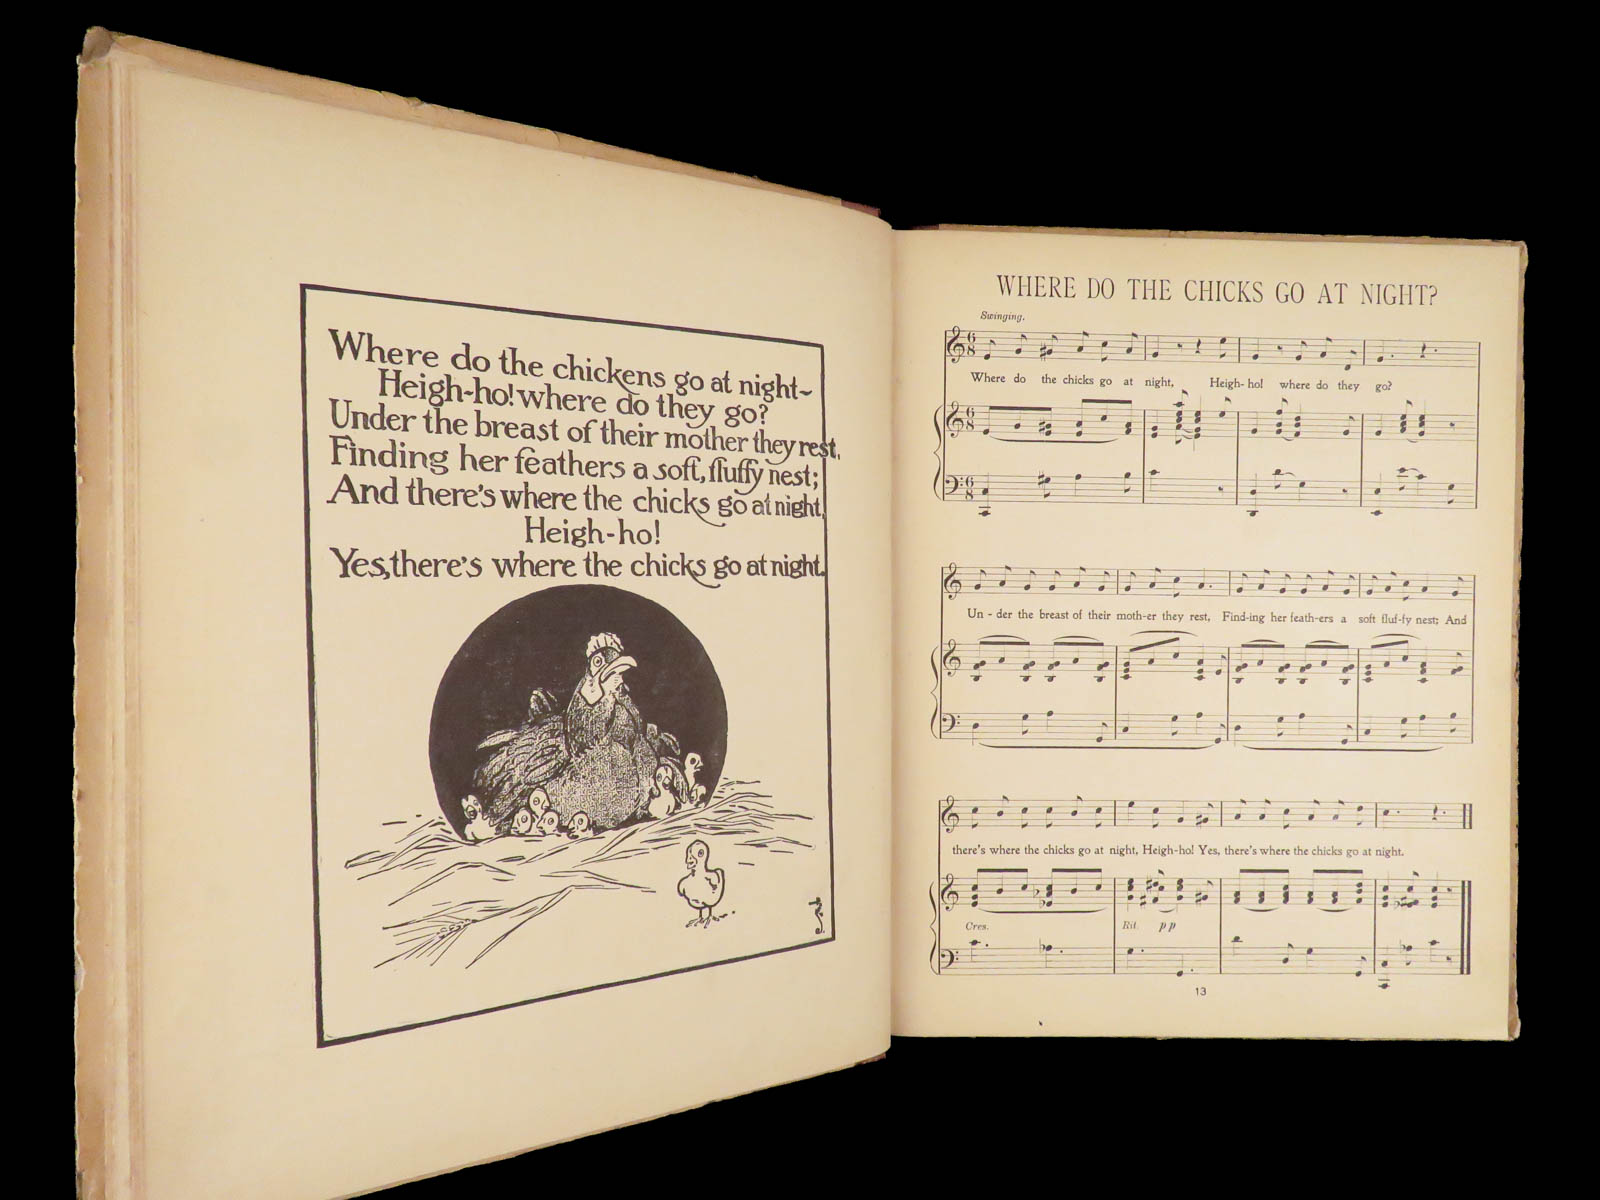 Where do the chickens go at night~
Heigh-ho! where do they go?
Under the breast of their mother they rest,
Finding her feathers a soft, fluffy nest;
And there's where the chicks go at night,
Heigh-ho!
Yes, there's where the chicks go at night.
WHERE DO THE CHICKS GO AT NIGHT?
Swinging.
Where do the chicks go at night, Heigh-ho! where do they go?
Un - der the breast of their moth-er they rest, Find-ing her feath-ers a soft fluf-fy nest; And
there's where the chicks go at night, Heigh-ho! Yes, there's where the chicks go at night.
Cres. Rit. pp
13